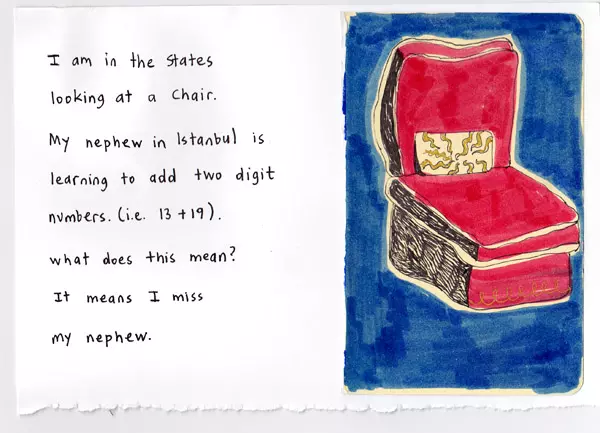 I am in the states
looking at a chair.
My nephew in Istanbul is
learning to add two digit
numbers. (i.e. 13 + 19).
what does this mean?
It means I miss
my nephew.